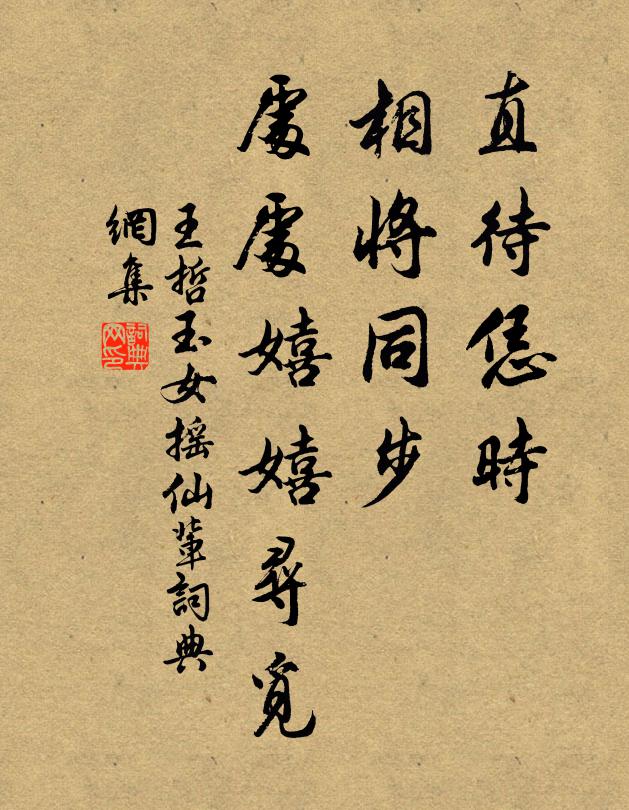 直待恁時
相將同步
處處嬉嬉尋覓
王哲玉女摇仙輩詞典
網集
詞典
网印